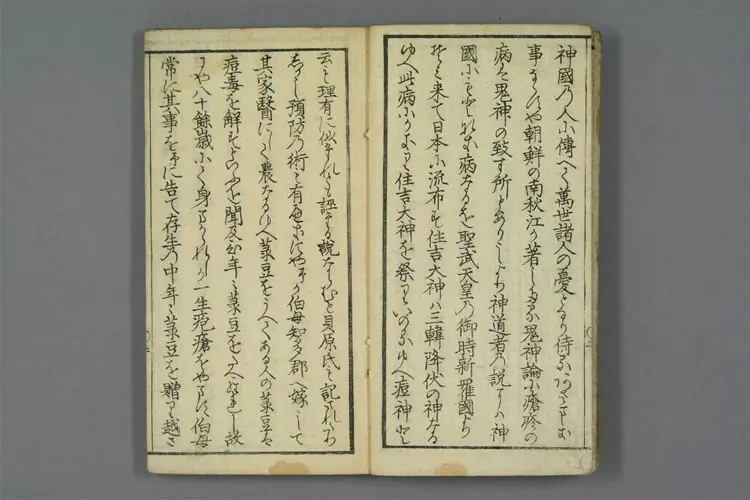 神國乃人に傳へて萬世諸人の憂となり侍る
事ならにや朝鮮の南秋江の著したる鬼神論に瘡疹の
病を鬼神の致す所とありしより神道者の説には神
國にもと
病なるを聖武天皇乃御時新羅國より
來て日本に流布す住吉大神ハ三韓降伏の神なる
ゆへ此病にかゝ 住吉大神を祭り いのるゆへ痘神と
云も理有に似 れども 説ならむと貝原氏も記されたり
しかし預防乃術も有 にや予が伯母知多郡へ嫁して
其家醫にして農なるゆへ菉豆をうへてある人の菉豆を
痘毒を解すといふを聞及び年々菉豆をたへ し故
にや八十餘歳にて身まかれしが一生疱瘡をやまず伯母
常に其事を予に告て存生の中年々菉豆を贈り越さ